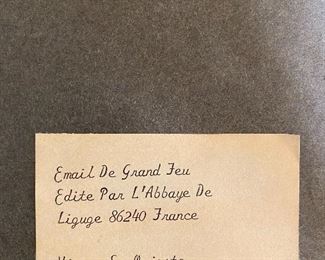 Email De Grand Feu
Edite Par L'Abbaye De
Liguge 86240 France